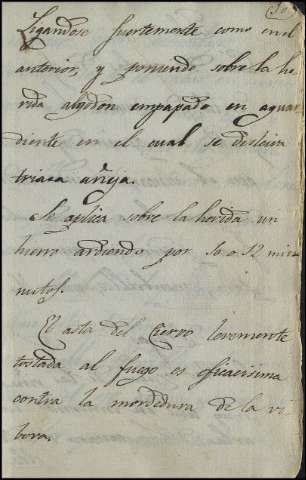 Ligandose fuertemente como en el
anterior, y poniendo sobre la he
rida algodon empapado en aguar
diente en el cual se disleira
triaca añeja.
Se aplica sobre la herida un
hierro ardiendo por 10 o 12 mi
nutos.
El asta del Ciervo levemente
tostada al fuego es eficacisima
contra la mordedura de la vi
bora.